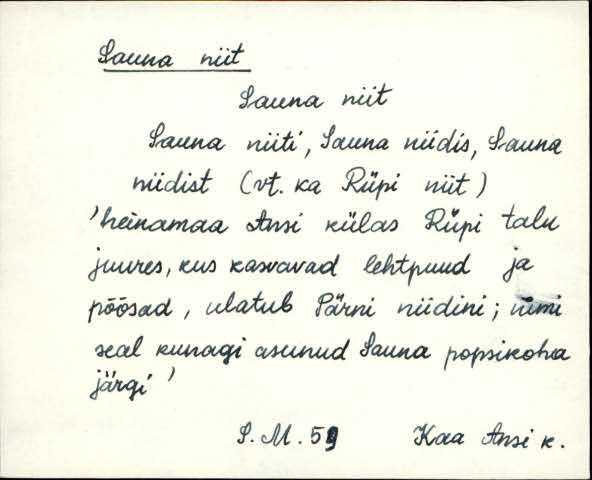 Sauna niit
Sauna niit
Sauna niiti, Sauna niidis, Sauna
niidist (vt. ka Rüpi niit)
'heinamaa Ansi külas Rüpi talu
juures, kus kasvavad lehtpuud ja
põõsad, ulatub Pärni niidini; nimi
seal kunagi asunud Sauna popsikoha
järgi'
S.M. 59 Kaa Ansi k.